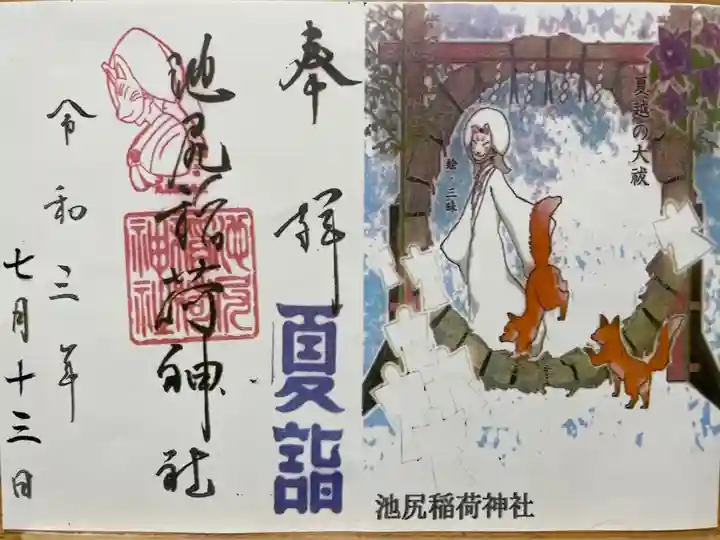 夏越の大祓
絵・三昧
池尻稲荷神社
奉拝
夏詣
池尻稲荷神社
池尻稲荷神社
令和三年
七月十三日